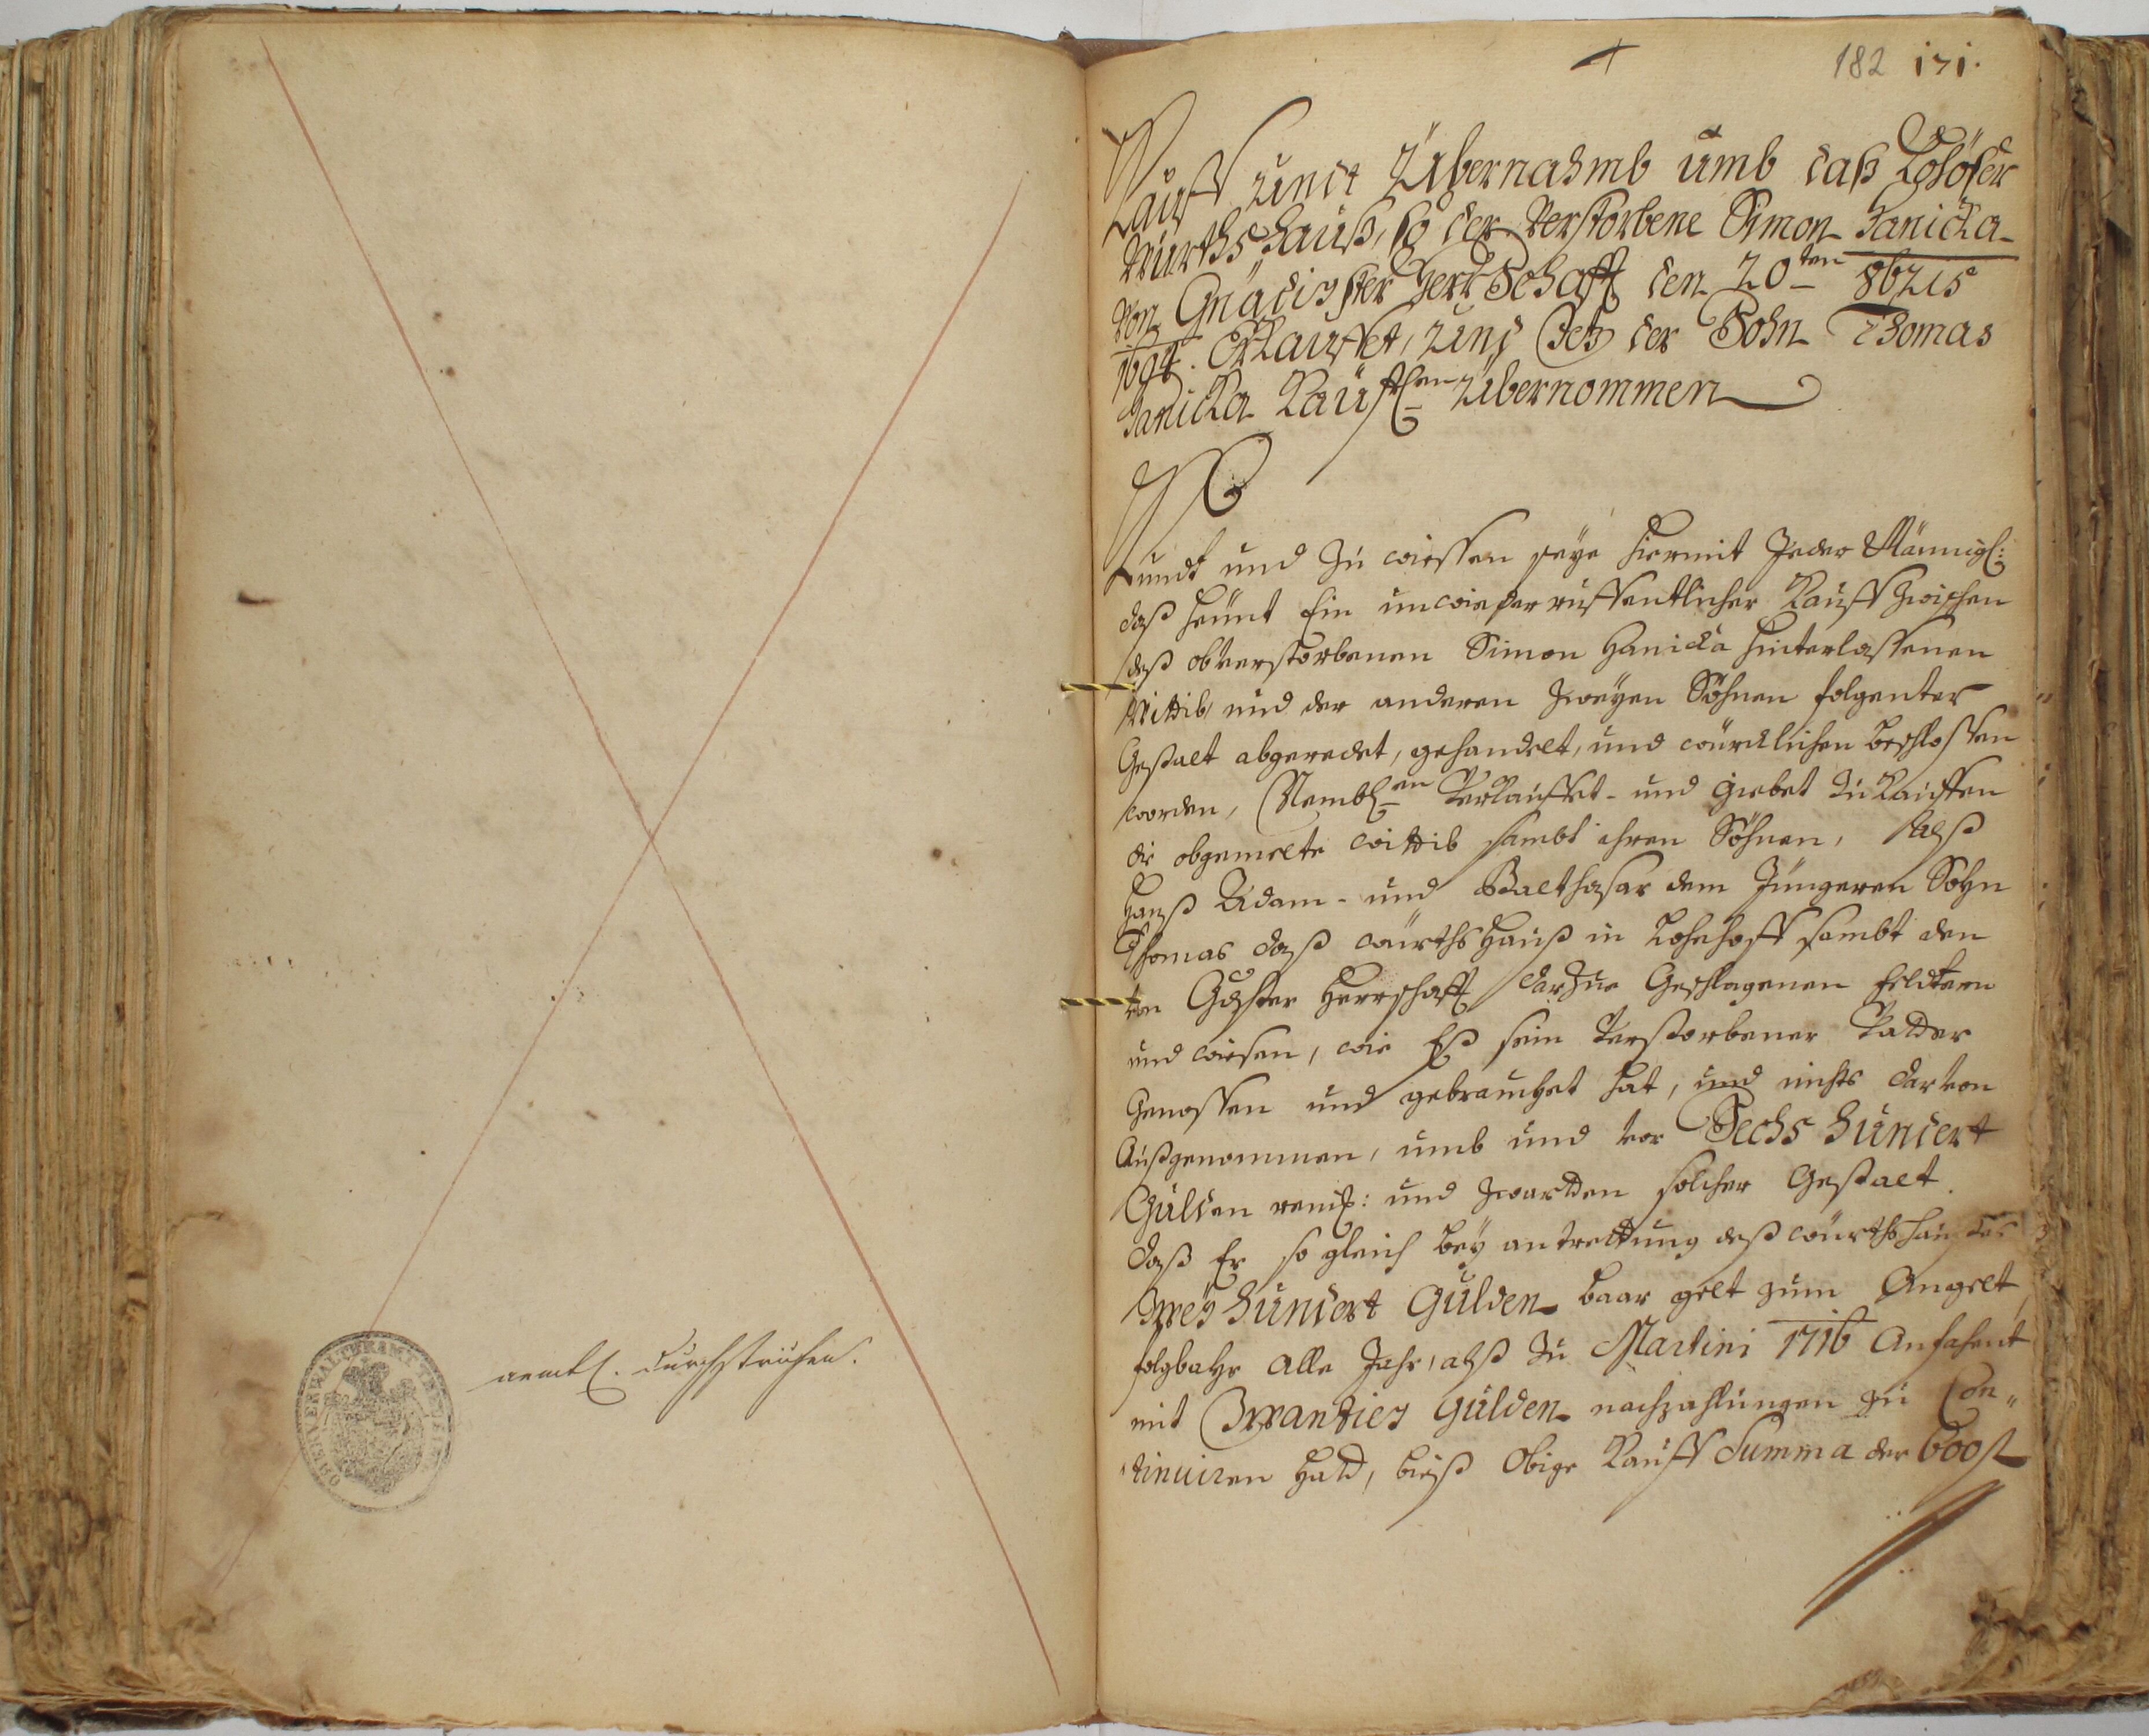 aemtl. durchstrichen.
OBERVERWALTERAMT
182 171.
Kauff undt Übernahmb umb daß Lohöfer
Würthshauß, so der Verstorbene Simon Hanicka
von Gnädigster Herrschafft den 20ten 8bris
1694. Erkauffet, und Jetz der Sohn Thomas
Hanicka Kaufflen Übernommen
Kundt und Zu wiessen seye hiermit Jeder Männigl:
daß heünt Ein unwiederruffentlicher Kauff zwischen
deß obverstorbenen Simon Hanicka hinterlassenen
Wittib, und der anderen zweyen Söhnen folgenter
Gestalt abgeredet, gehandelt, und würcklichen beschlossen
worden, Nembl:en Verkauffet- und giebet zu Kauffen
die obgemelte Wittib sambt ihren Söhnen, Alß
Hanß Adam- und Balthasar dem Jüngeren Sohn
Thomas daß würthshauß in Lohehoff sambt den
von Gdster Herrschafft darzue Geschlagenen feldtern
und wiesen, wie Eß sein Verstorbener Vatter
Genossen und gebrauchet hat, und nichts darvon
Außgenommen, umb und vor Sechs Hundert
Gulden reinl: und zwartten solcher Gestalt
daß Er so gleich bey antrettung deß würthshaußes
Zwey Hundert Gulden baar gelt zum Angelt,
folgbahr alle Jahr, alß Zu Martini 1716 Anfahent
mit Zwantzig Gulden nachzahlungen zu Con„
tinuiren hatt, bieß Obige Kauff Summa der 600 fl